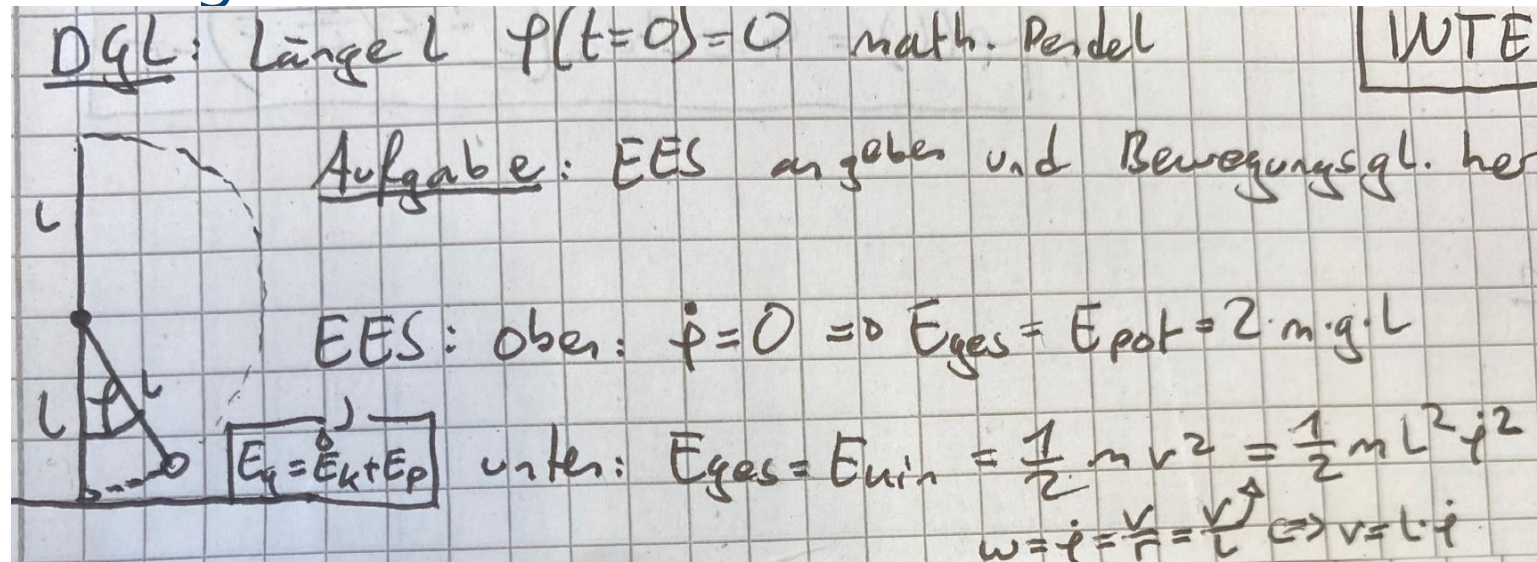 DGL: Länge l φ(t=0)=0 math. Pendel
WTE
Aufgabe: EES angeben und Bewegungsgl. her
l
EES: oben: φ̇=0 => Eges = Epot = 2·m·g·L
l φ l
Eg = Ek + Ep
unten: Eges = Ekin = 1/2 m v² = 1/2 m L² φ̇²
ω = φ̇ = v/r = v/L <=> v = L·φ̇